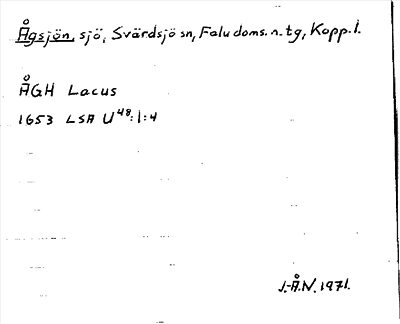 Ågsjön, sjö, Svärdsjö sn, Falu doms. n. tg, Kopp. l.
ÅGH Lacus
1653 LSA U48:1:4
J.-Å.N. 1971.